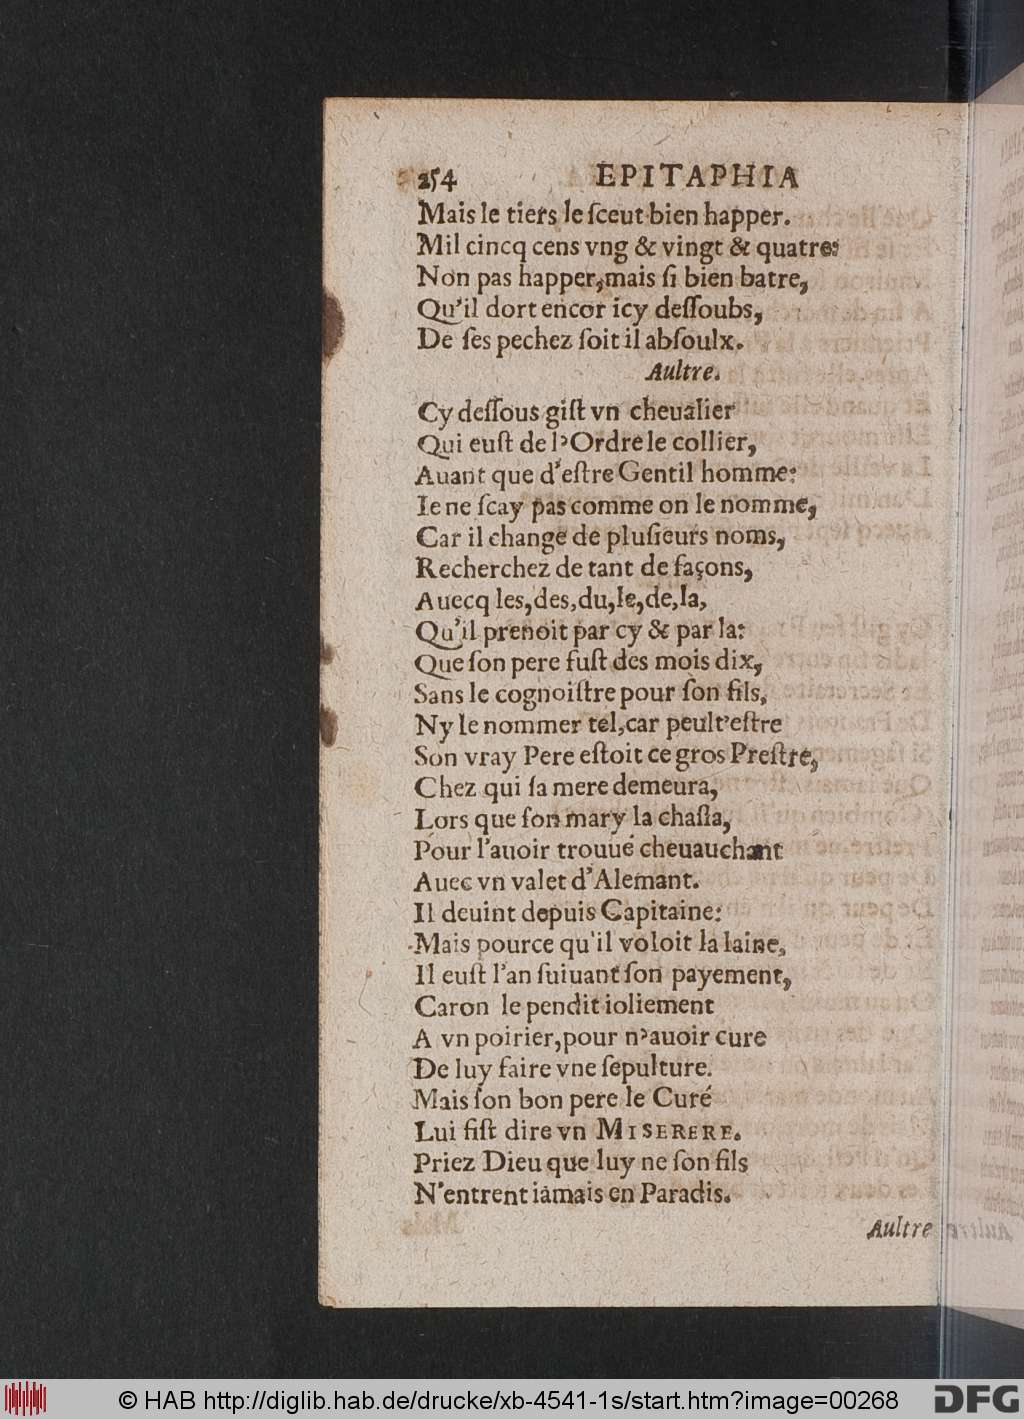 254 EPITAPHIA
Mais le tiers le ſceut bien happer.
Mil cincq cens vng & vingt & quatre:
Non pas happer, mais ſi bien batre,
Qu'il dort encor icy deſſoubs,
De ſes pechez ſoit il abſoulx.
Aultre.
Cy deſſous giſt vn cheualier
Qui euſt de l'Ordre le collier,
Auant que d'eſtre Gentil homme:
Ie ne ſcay pas comme on le nomme,
Car il change de pluſieurs noms,
Recherchez de tant de façons,
Auecq les, des, du, le, de, la,
Qu'il prenoit par cy & par la:
Que ſon pere fuſt des mois dix,
Sans le cognoiſtre pour ſon fils,
Ny le nommer tel, car peult'eſtre
Son vray Pere eſtoit ce gros Preſtre,
Chez qui ſa mere demeura,
Lors que ſon mary la chaſſa,
Pour l'auoir trouué cheuauchant
Auec vn valet d'Alemant.
Il deuint depuis Capitaine:
Mais pource qu'il voloit la laine,
Il euſt l'an ſuiuant ſon payement,
Caron le pendit ioliement
A vn poirier, pour n'auoir cure
De luy faire vne ſepulture.
Mais ſon bon pere le Curé
Lui fiſt dire vn MISERERE.
Priez Dieu que luy ne ſon fils
N'entrent iamais en Paradis.
Aultre
© HAB http://diglib.hab.de/drucke/xb-4541-1s/start.htm?image=00268 DFG